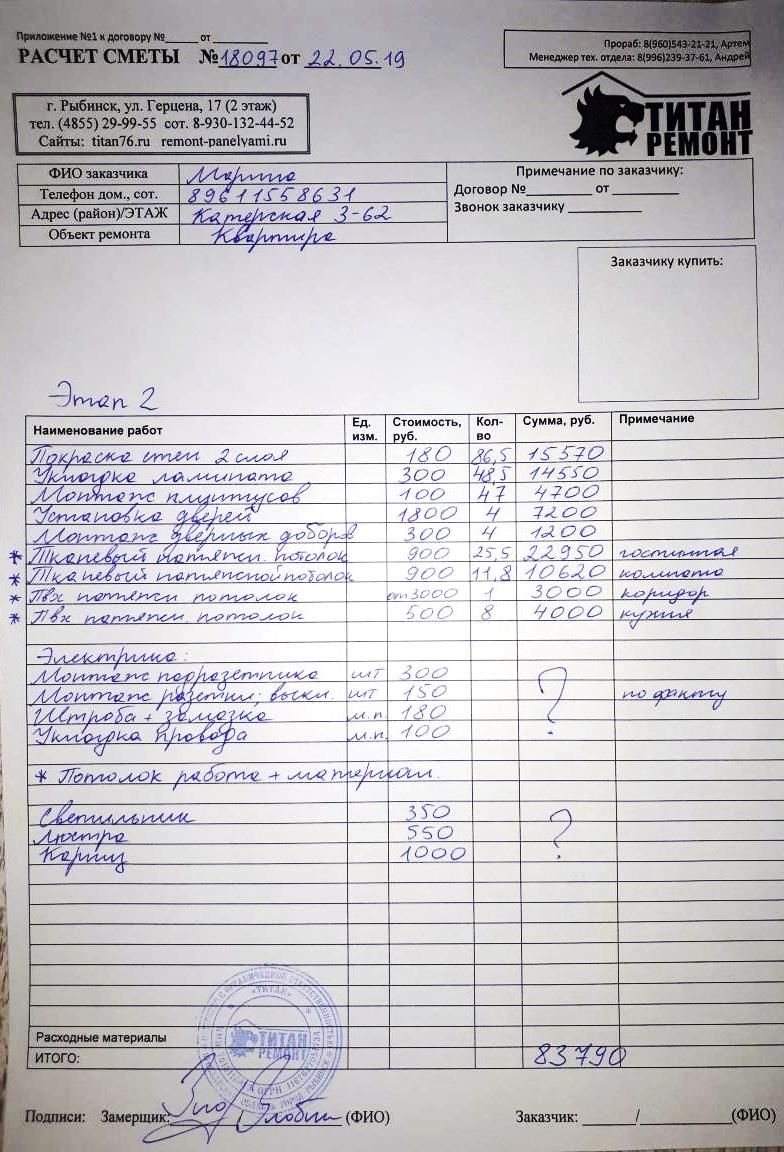 Приложение №1 к договору №______ от ________
Прораб: 8(960)543-21-21, Артем
РАСЧЕТ СМЕТЫ №18097 от 22.05.19
Менеджер тех. отдела: 8(996)239-37-61, Андрей
г. Рыбинск, ул. Герцена, 17 (2 этаж)
тел. (4855) 29-99-55 сот. 8-930-132-44-52
Сайты: titan76.ru remont-panelyami.ru
ТИТАН
РЕМОНТ
ФИО заказчика Марина
Телефон дом., сот. 89611558631
Адрес (район)/ЭТАЖ Катерская 3-62
Объект ремонта Квартира
Примечание по заказчику:
Договор №_________ от _________
Звонок заказчику __________
Заказчику купить:
Этап 2
Наименование работ Ед. изм. Стоимость, руб. Кол-во Сумма, руб. Примечание
Покраска стен 2 слоя 180 86,5 15570
Укладка ламината 300 48,5 14550
Монтаж плинтусов 100 47 4700
Установка дверей 1800 4 7200
Монтаж дверных доборов 300 4 1200
* Тканевый натяжн. потолок 900 25,5 22950 гостинная
* Тканевый натяжной потолок 900 11,8 10620 комната
* Пвх натяжн потолок от 3000 1 3000 коридор
* Пвх натяжн. потолок 500 8 4000 кухня
Электрика:
Монтаж подразетника шт 300
Монтаж разетки; выкл. шт 150 ? по факту
Штроба + замазка м.п. 180
Укладка провода м.п. 100
* Потолок работа + материал.
Светильник 350
Люстра 550 ?
Карниз 1000
Расходные материалы
ИТОГО: 83790
«ТИТАН»
ТИТАН
РЕМОНТ
Подписи: Замерщик: / Злобин (ФИО) Заказчик: ______/__________(ФИО)